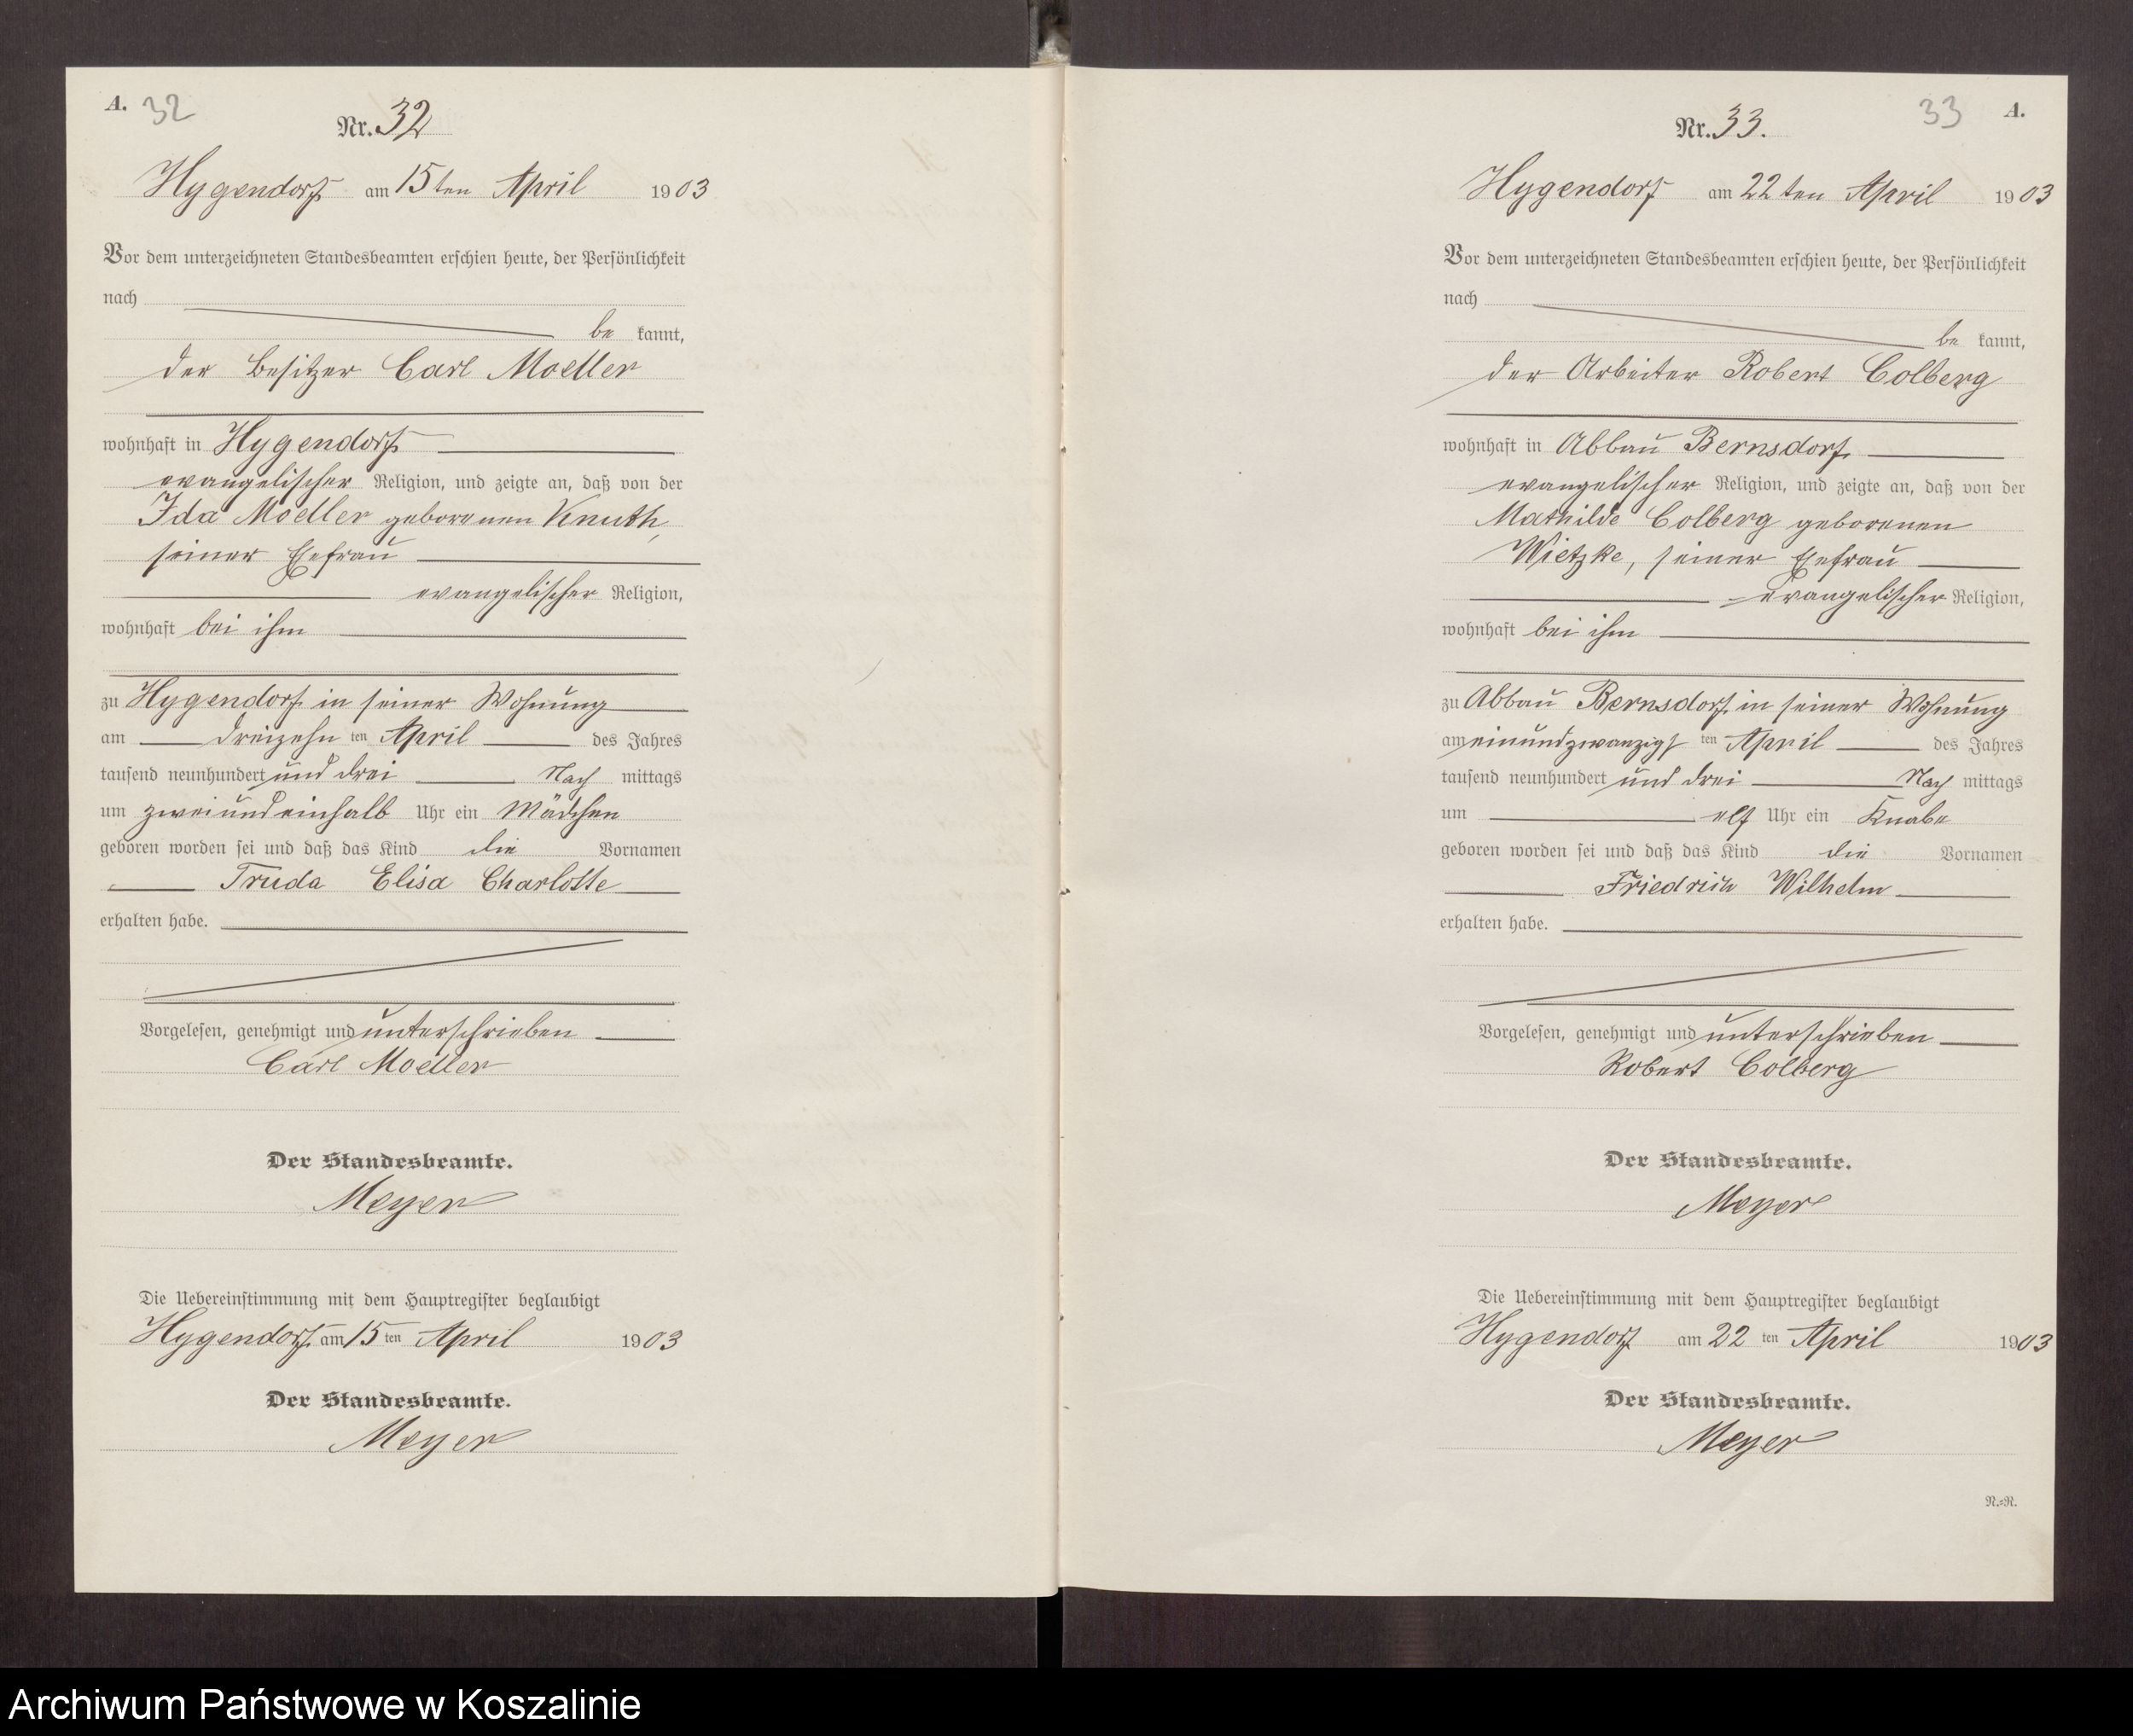 A. 32
Nr. 32
Hygendorf am 15ten April 1903
Vor dem unterzeichneten Standesbeamten erschien heute, der Persönlichkeit
nach
be kannt,
der Besitzer Carl Moeller
wohnhaft in Hygendorf
evangelischer Religion, und zeigte an, daß von der
Ida Moeller geborenen Knuth,
seiner Ehefrau
evangelischer Religion,
wohnhaft bei ihm
zu Hygendorf in seiner Wohnung
am dreizehn ten April des Jahres
tausend neunhundert und drei Nach mittags
um zweiundeinhalb Uhr ein Mädchen
geboren worden sei und daß das Kind die Vornamen
Truda Elisa Charlotte
erhalten habe.
Vorgelesen, genehmigt und unterschrieben
Carl Moeller
Der Standesbeamte.
Meyer
Die Uebereinstimmung mit dem Hauptregister beglaubigt
Hygendorf am 15 ten April 1903
Der Standesbeamte.
Meyer
33 A.
Nr. 33.
Hygendorf am 22ten April 1903
Vor dem unterzeichneten Standesbeamten erschien heute, der Persönlichkeit
nach
be kannt,
der Arbeiter Robert Colberg
wohnhaft in Abbau Bernsdorf
evangelischer Religion, und zeigte an, daß von der
Mathilde Colberg geborenen
Wietzke, seiner Ehefrau
evangelischer Religion,
wohnhaft bei ihm
zu Abbau Bernsdorf in seiner Wohnung
am einundzwanzigs ten April des Jahres
tausend neunhundert und drei Nach mittags
um elf Uhr ein Knabe
geboren worden sei und daß das Kind die Vornamen
Friedrich Wilhelm
erhalten habe.
Vorgelesen, genehmigt und unterschrieben
Robert Colberg
Der Standesbeamte.
Meyer
Die Uebereinstimmung mit dem Hauptregister beglaubigt
Hygendorf am 22 ten April 1903
Der Standesbeamte.
Meyer
N.=R.
Archiwum Państwowe w Koszalinie